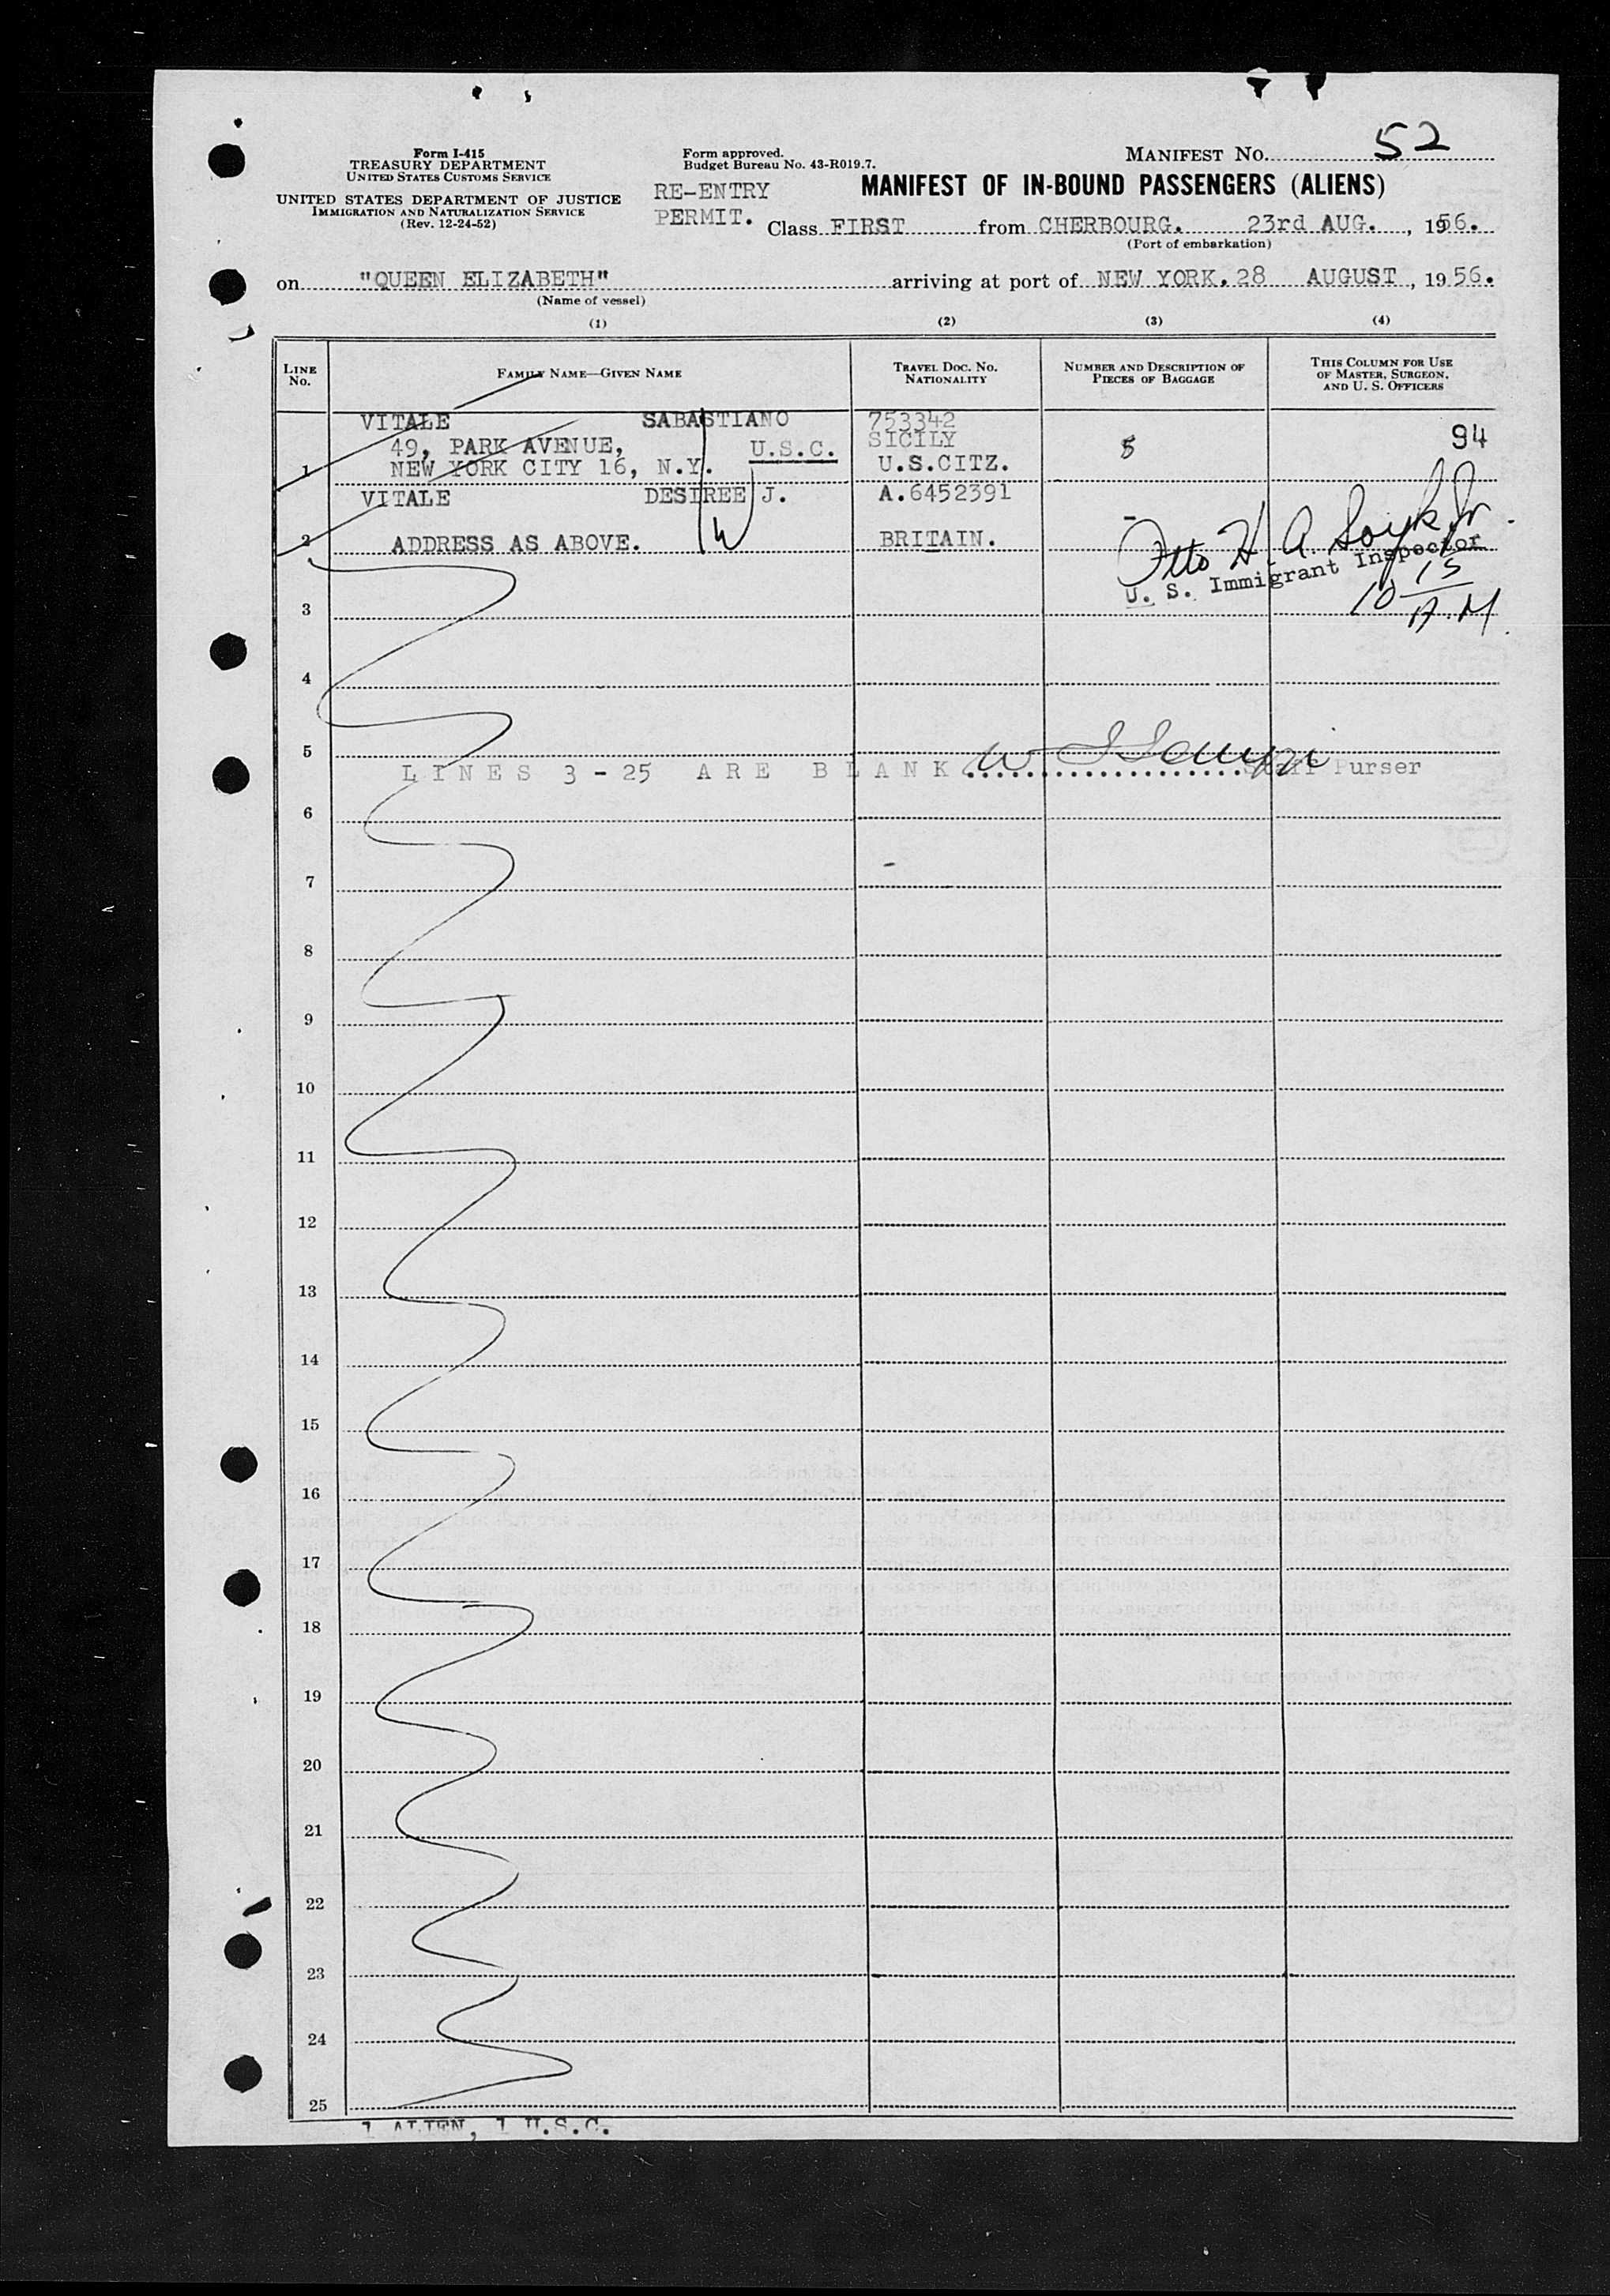 Form I-415
TREASURY DEPARTMENT
UNITED STATES CUSTOMS SERVICE
UNITED STATES DEPARTMENT OF JUSTICE
IMMIGRATION AND NATURALIZATION SERVICE
(Rev. 12-24-52)
Form approved.
Budget Bureau No. 43-R019.7.
MANIFEST NO. 52
RE-ENTRY
PERMIT.
MANIFEST OF IN-BOUND PASSENGERS (ALIENS)
Class FIRST from CHERBOURG. 23rd AUG., 1956.
(Port of embarkation)
on "QUEEN ELIZABETH" arriving at port of NEW YORK. 28 AUGUST, 1956.
(Name of vessel)
(1) (2) (3) (4)
LINE No.
FAMILY NAME—GIVEN NAME
TRAVEL DOC. NO. NATIONALITY
NUMBER AND DESCRIPTION OF PIECES OF BAGGAGE
THIS COLUMN FOR USE OF MASTER, SURGEON, AND U. S. OFFICERS
VITALE SABASTIANO 753342
49, PARK AVENUE, U.S.C. SICILY 94
1 NEW YORK CITY 16, N.Y. U.S.CITZ.
VITALE DESIREE J. A.6452391 -
2 ADDRESS AS ABOVE. W BRITAIN.
Otto H A
U. S. Immigrant Inspector
10 15 A.M.
3
4
5
LINES 3-25 ARE BLANK Staff Purser
6
7
8
9
10
11
12
13
14
15
16
17
18
19
20
21
22
23
24
25
1 ALIEN, 1 U.S.C.